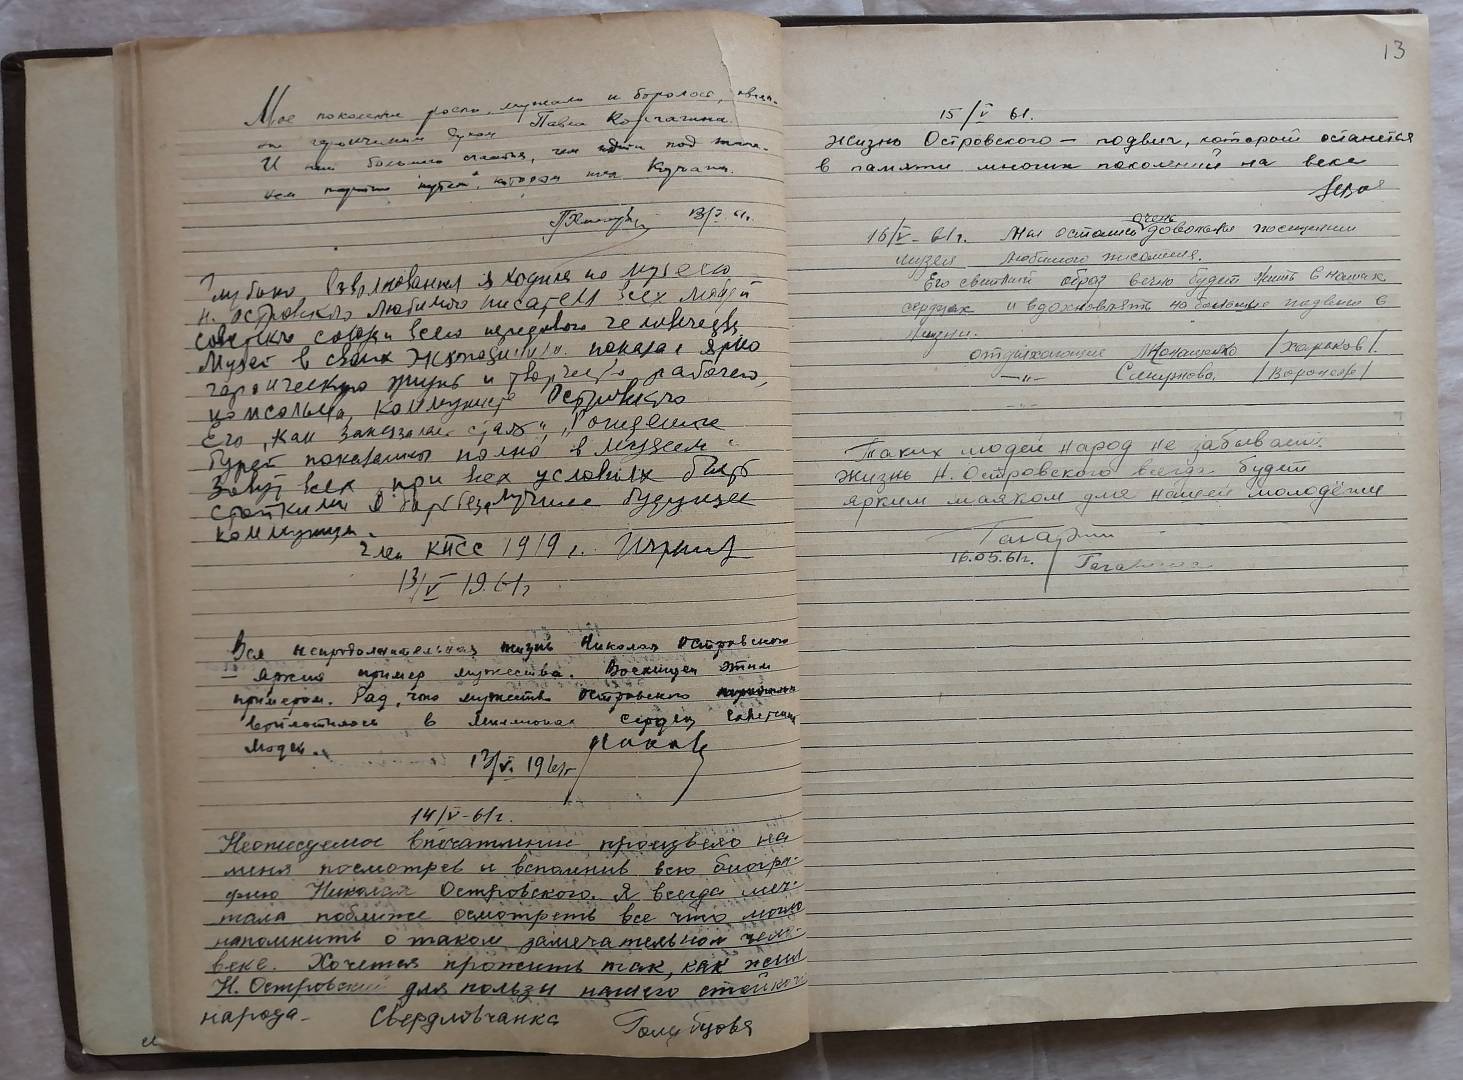 Мое поколение росло, мужало и боролось,
героическим духом Павла Корчагина.
И нет большего счастья, чем идти под
"путем", которым шел Корчагин.
13/V 61г.
Глубоко взволнованная я ходила по музею
Н. Островского любимого писателя всех людей
советского союза всего передового человечества
Музей в своих экспозициях показал ярко
героическую жизнь и творчество рабочего,
комсольца, коммуниста Островского
Его „Как закалялась сталь", „Рожденные
бурей показаны полно в музеем
Зовут всех при всех условиях быть
стойкими в борьбе за лучшее будущее
коммунизм.
Член КПСС 1919 г.
13/V 1961г
Вся непродолжительная жизнь Николая Островского
– яркий пример мужества. Восхищен этим
примером. Рад, что мужество Островского
воплотилось в миллионах сердец советских
людей.
13/V. 1961г
14/V-61г.
Неописуемое впечатление произвело на
меня посмотрев и вспомнив всю биогра-
фию Николая Островского. Я всегда меч-
тала поближе осмотреть все что могло
напомнить о таком замечательном чело-
веке. Хочется прожить так, как жил
Н. Островский для пользы нашего стойкого
народа- Свердловчанка Голубцова
13
15/V 61.
Жизнь Островского – подвиг, которой останется
в памяти многих поколений на веке
16/V-61г. Мы остались очень довольны посещением
музея любимого писателя.
Его светлый образ вечно будет жить в наших
сердцах и вдохновлять на большие подвиги в
жизни.
отдыхающие /Харьков/.
—"— Смирнова /Воронеж/
Таких людей народ не забывает.
Жизнь Н. Островского всегда будет
ярким маяком для нашей молодёжи
Гагарин
16.05.61г. Гагарина